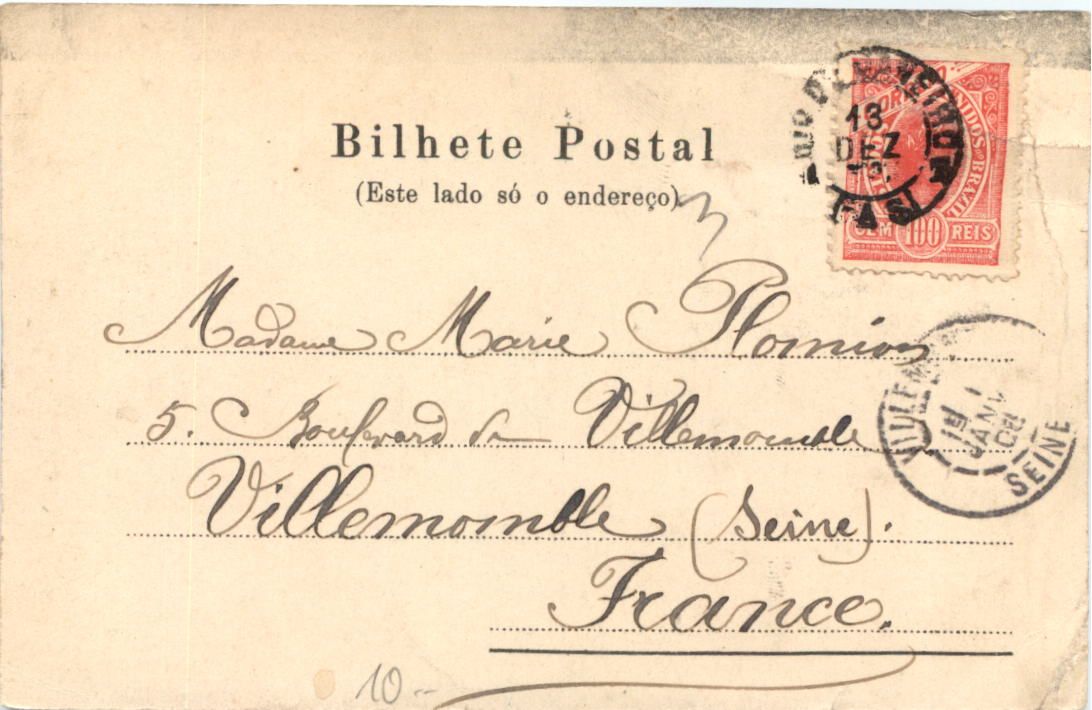 Bilhete Postal
(Este lado só o endereço)
RIO DE JANEIRO
13
DEZ
UNIDOS DO BRAZIL
CEM 100 REIS
3
Madame Marie Plomion
5. Boulevard de Villemomble
Villemomble (Seine).
France.
VILLEMOMBLE
JANV
06
SEINE
10--